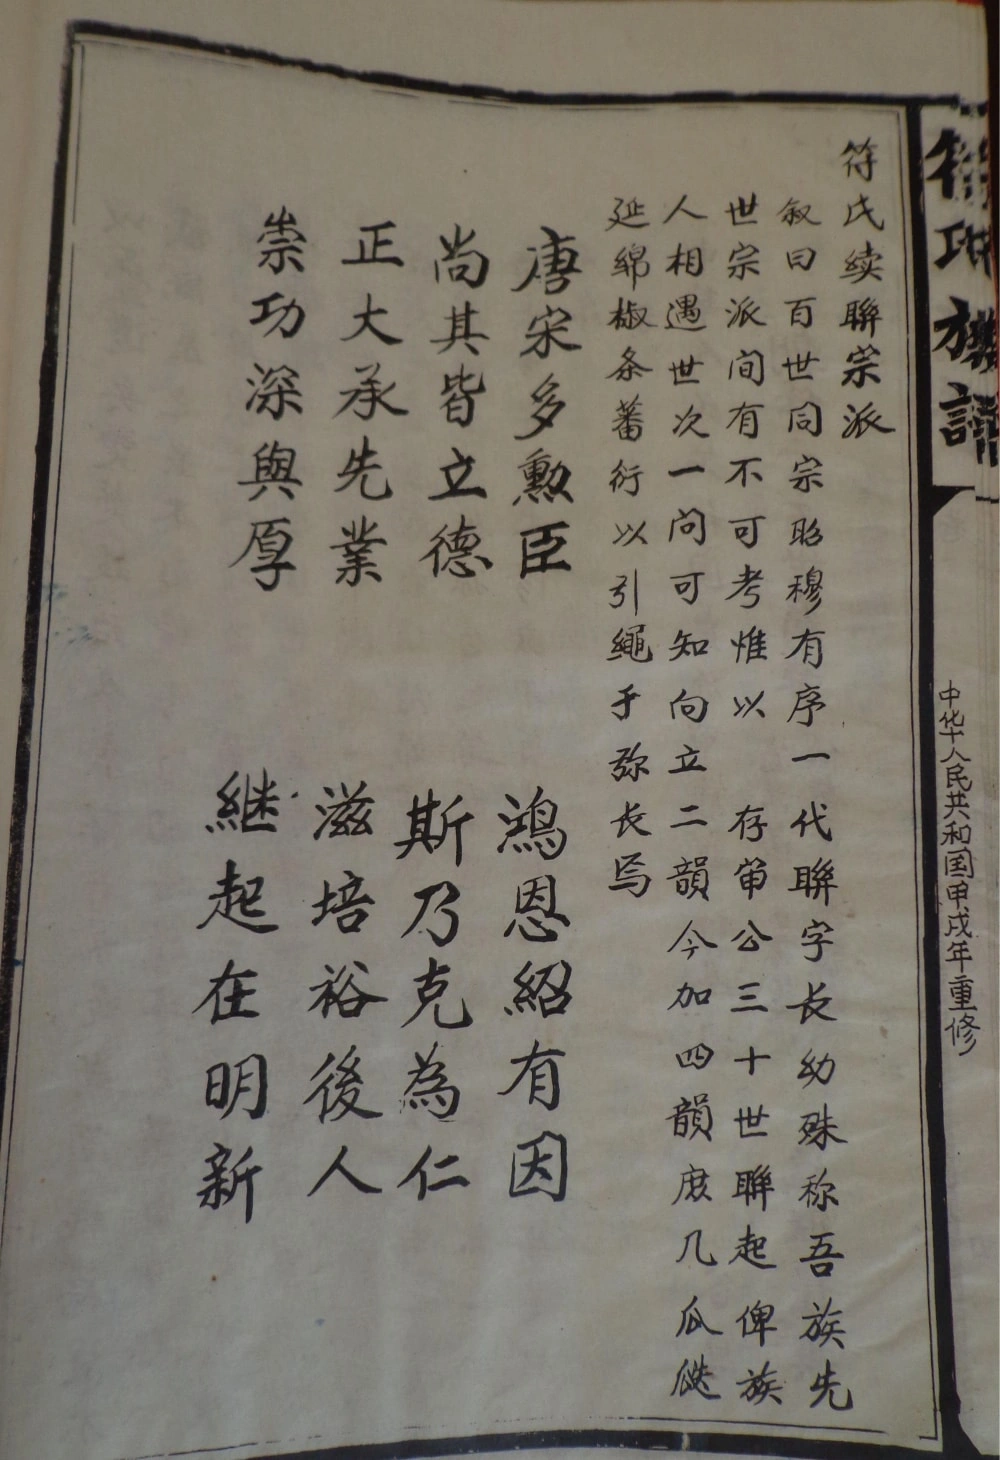 符氏族譜
中华人民共和国甲戌年重修
符氏续聯宗派
叙曰百世同宗昭穆有序一代聯字长幼殊称吾族先
世宗派间有不可考惟以 存甾公三十世聯起俾族
人相遇世次一问可知向立二韻今加四韻庶几瓜瓞
延绵椒条蕃衍以引繩于弥长焉
唐宋多勲臣 鴻恩紹有因
尚其皆立德 斯乃克為仁
正大承先業 滋培裕後人
崇功深與厚 継起在明新